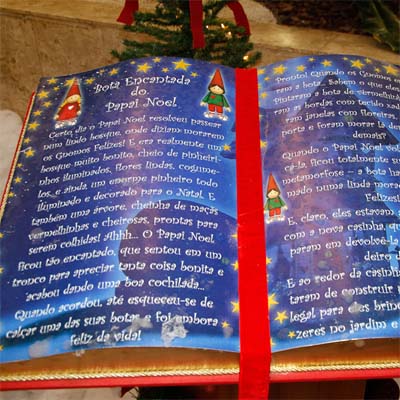 Bota Encantada
do
Papai Noel
Certo dia o Papai Noel resolveu passear
num lindo bosque, onde diziam morarem
os Gnomos Felizes! E era realmente um
bosque muito bonito, cheio de pinheiri-
nhos iluminados, flores lindas, cogume-
los, e ainda um enorme pinheiro todo
iluminado e decorado para o Natal. E
também uma árvore, cheinha de maçãs
vermelhinhas e cheirosas, prontas para
serem colhidas! Ahhh... O Papai Noel
ficou tão encantado, que sentou em um
tronco para apreciar tanta coisa bonita e
acabou dando uma boa cochilada...
Quando acordou, até esqueceu-se de
calçar uma das suas botas e foi embora
feliz da vida!
Pronto! Quando os Gnomos
ram a bota... Sabem o que
Pintaram a bota de vermelhi
ram as bordas com tecido xad
ram janelas com floreiras,
porta e foram morar lá
demais?
Quando o Papai Noel vol
cá-la, ficou totalmente su
metamorfose - a bota ha
mado numa linda mora
Felizes!
E, claro, eles estavam a
com a nova casinha, qu
param em devolvê-la
deiro d
E ao redor da casinh
taram de construir
legal para eles brin
zeres no jardim e